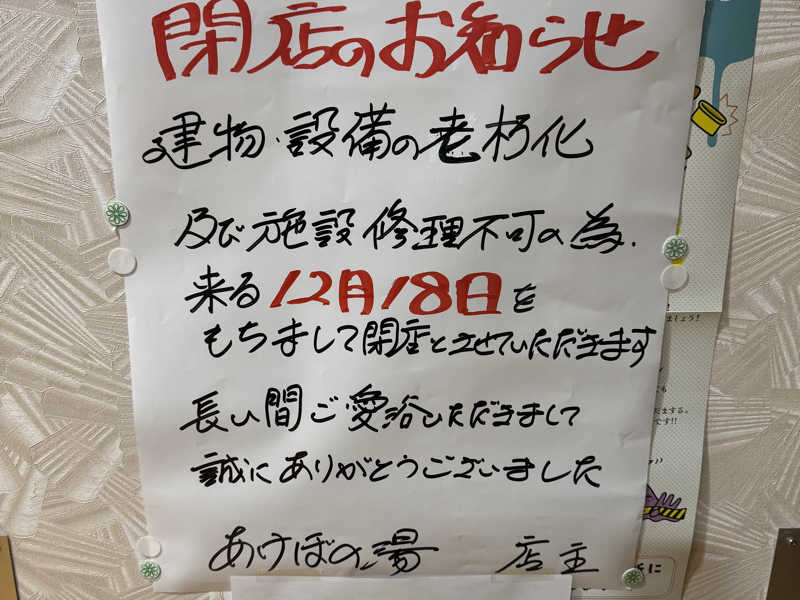 閉店のお知らせ
建物・設備の老朽化
及び施設修理不可の為、
来る12月18日を
もちまして閉店とさせていただきます
長い間ご愛浴いただきまして
誠にありがとうございました
あけぼの湯 店主
ましょう!
です!!